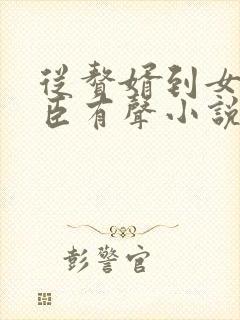 從贅婿到女
臣有聲小說
彭警官